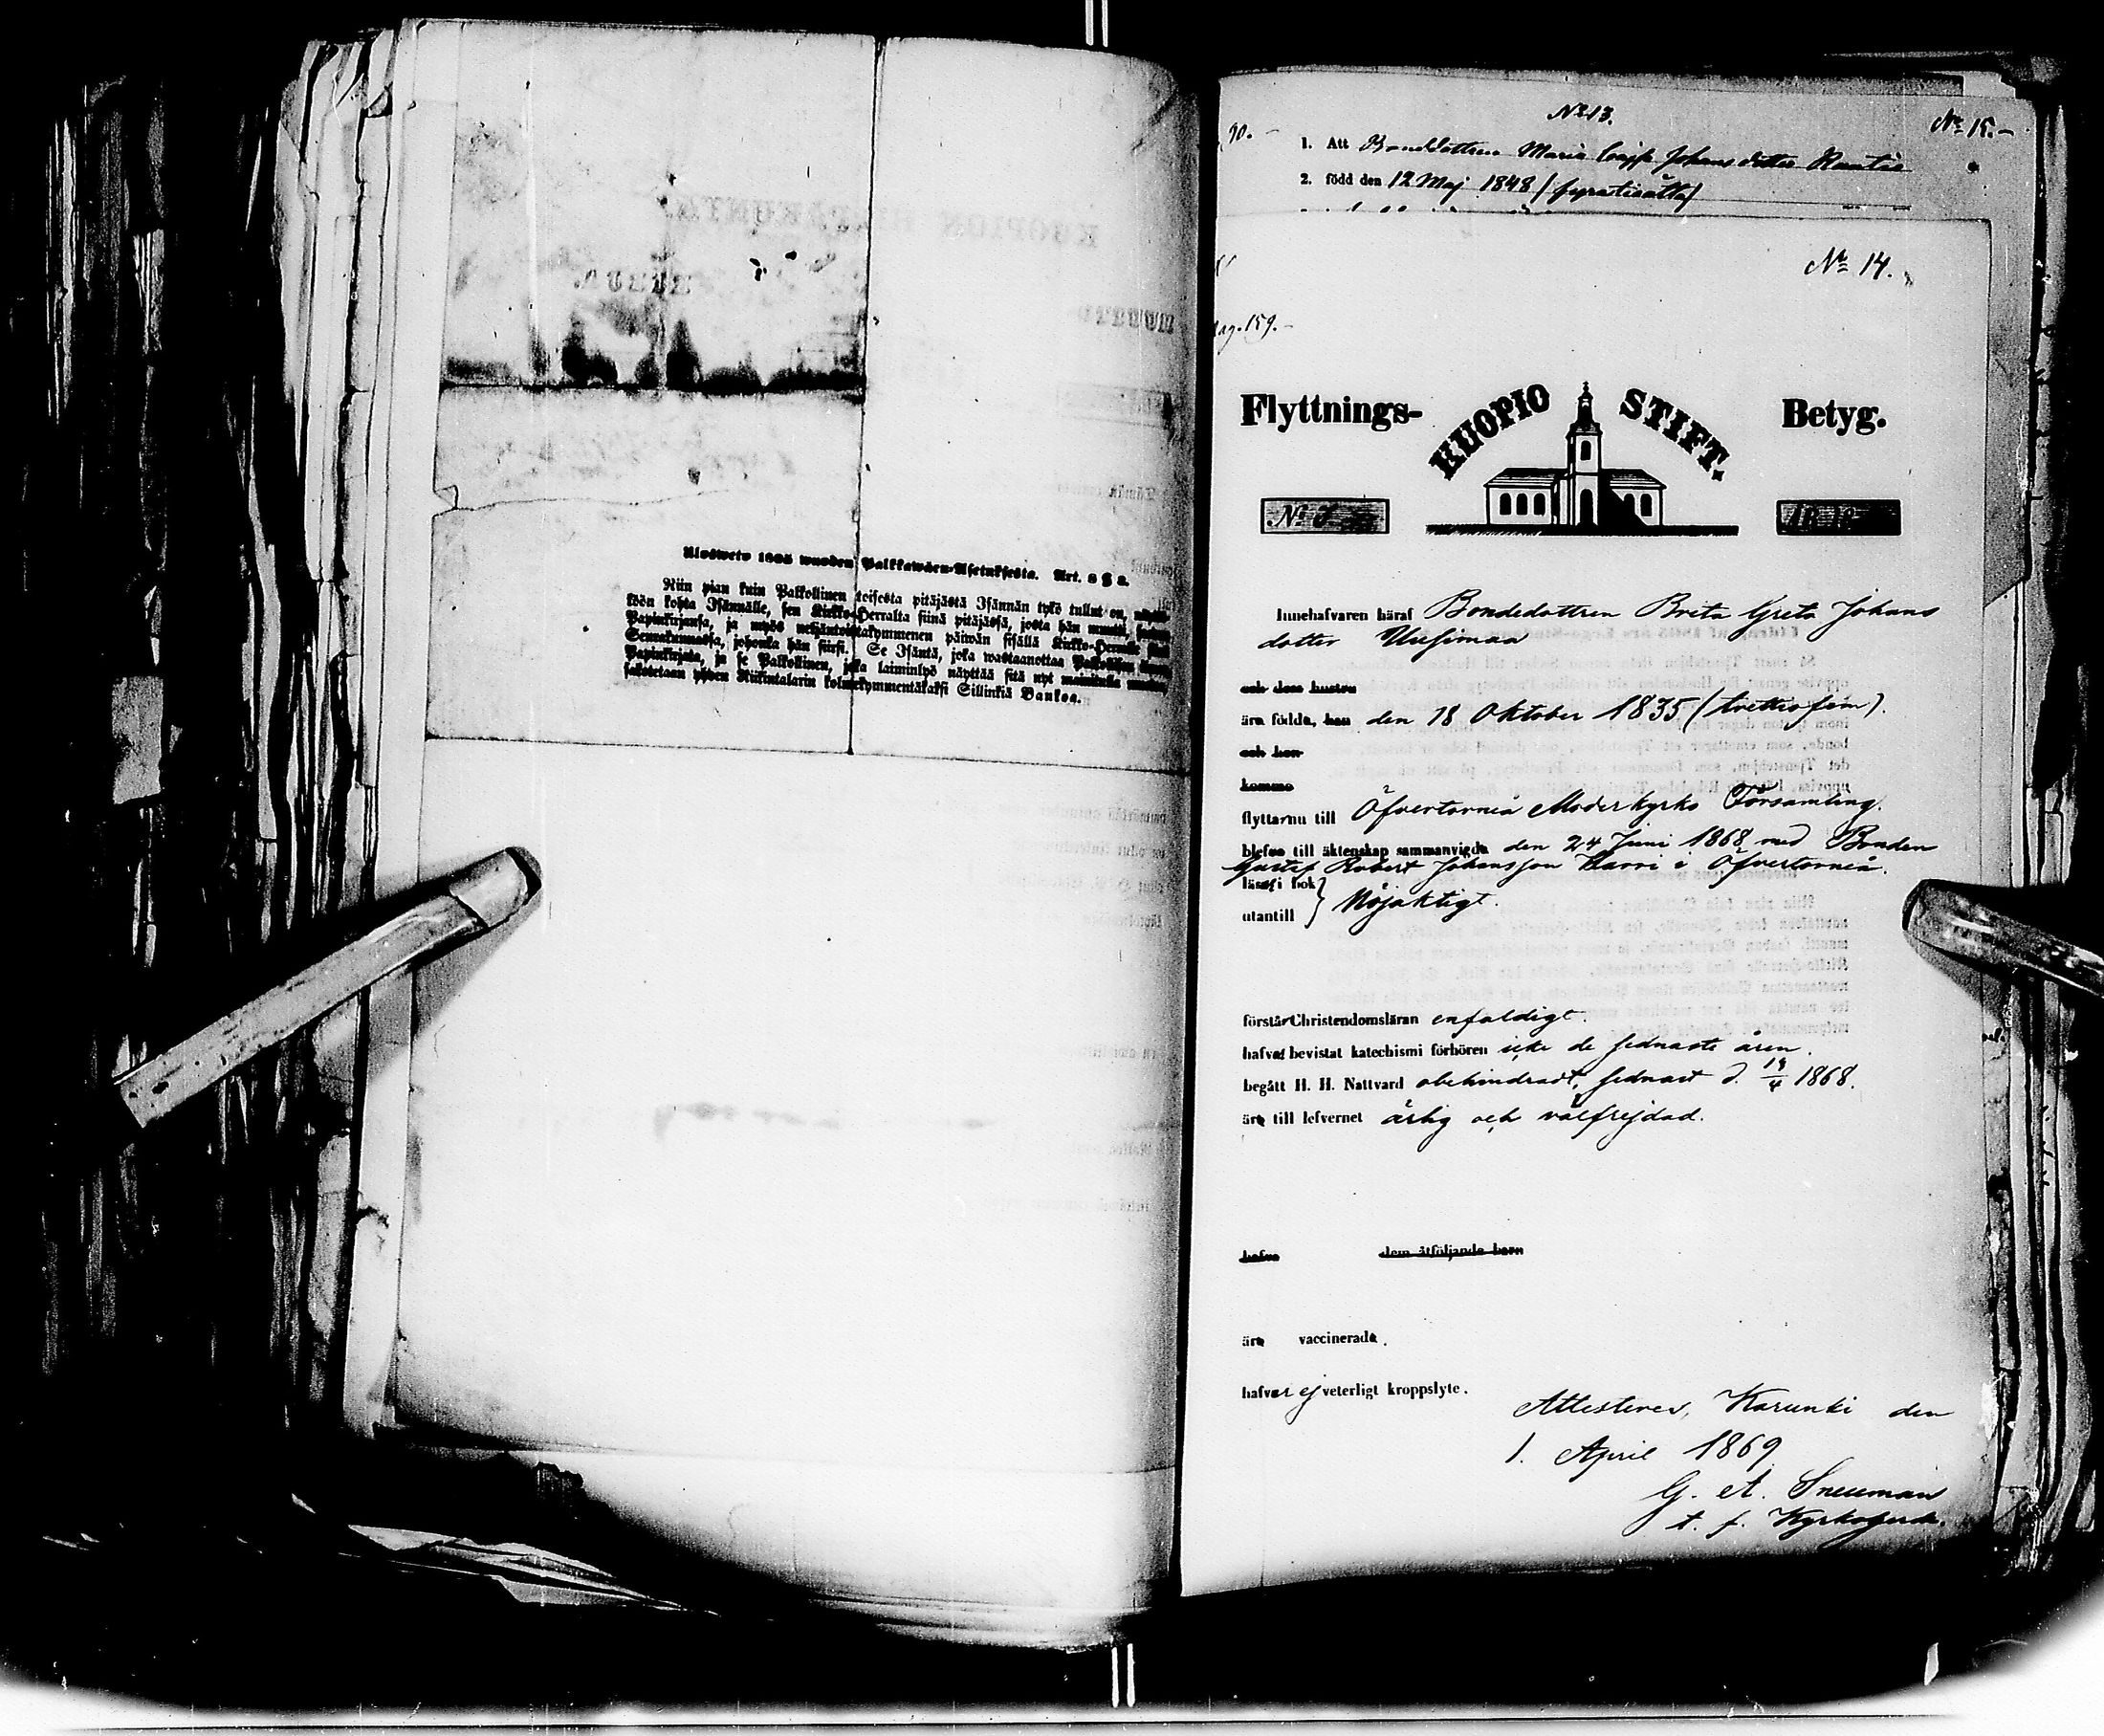 Ulosweto 1805 wuoden Palkkawäen-Asetuksesta. Art. 8 § 2.
Niin pian kuin Palkollinen toisesta pitäjästä Isännän tykö tullut on,
köön kohta Isännälle, sen Kirkko-Herralta siinä pitäjässä, josta hän muutti,
Papinkirjansa, ja myös neljäntoistakymmenen päiwän sisällä Kirkko-Herralle siinä
Seurakunnassa, johonka hän siirsi. Se Isäntä, joka wastaanottaa Palkollisen ilman
Papinkirjata, ja se Palkollinen, joka laiminlyö näyttää sitä nyt mainitulla
sakotetaan yhden Riikintalarin kolmekymmentäkaksi Sillinkiä Bankoa.
90.-
No 13.
No 15.-
1. Att Bonddottren Maria Johans dotter Rautio
2. född den 12 Maj 1848 (fyratioåtta)
No 14.
pag. 159.-
Flyttnings- KUOPIO STIFT. Betyg.
No
Innehafvaren häraf Bondedottren Brita Greta Johans
dotter Uusimaa
och dess hustru
äro födda, han den 18 Oktober 1835 (trettiofem).
och hon
komne
flyttar nu till Öfvertorneå Moderkyrko Församling.
blefvo till äktenskap sammanvigda den 24 Juni 1868 med Bonden
Gustaf Robert Johansson Karri i Öfvertorneå.
läser i bok
utantill } Nöjaktigt.
förstår Christendomsläran enfaldigt.
hafva bevistat katechismi förhören icke de sednaste åren.
begått H. H. Nattvard obehindradt, sednast d. 19/4 1868.
äro till lefvernet ärlig och välfrejdad.
hafva dem åtföljande barn
äro vaccinerade.
hafver ej veterligt kroppslyte.
Attesteres, Karunki den
1. April 1869
G. A. Sneuman
t. f. Kyrkoherde.